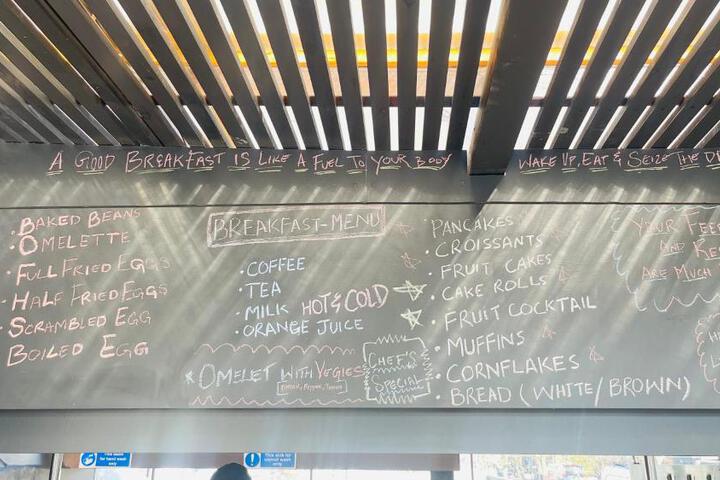 A GOOD BREAKFAST IS LIKE A FUEL TO YOUR BODY
WAKE UP, EAT & SEIZE THE
BAKED BEANS
• OMELETTE
• FULL FRIED EGGS
• HALF FRIED EGGS
• SCRAMBLED EGG
BOILED EGG
BREAKFAST-MENU
• COFFEE
• TEA
• MILK HOT & COLD
• ORANGE JUICE
* OMELET WITH VEGIES
CHEF'S
SPECIAL
• PANCAKES
• CROISSANTS
• FRUIT CAKES
• CAKE ROLLS
• FRUIT COCKTAIL
• MUFFINS
• CORNFLAKES
• BREAD (WHITE/BROWN)
YOUR
AND
ARE MUCH
This sink for
hand wash
only
This sink for
utensil wash
only